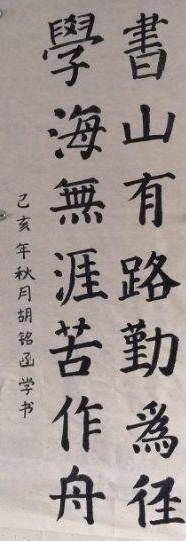 書山有路勤為徑
學海無涯苦作舟
己亥年秋月胡銘函学书